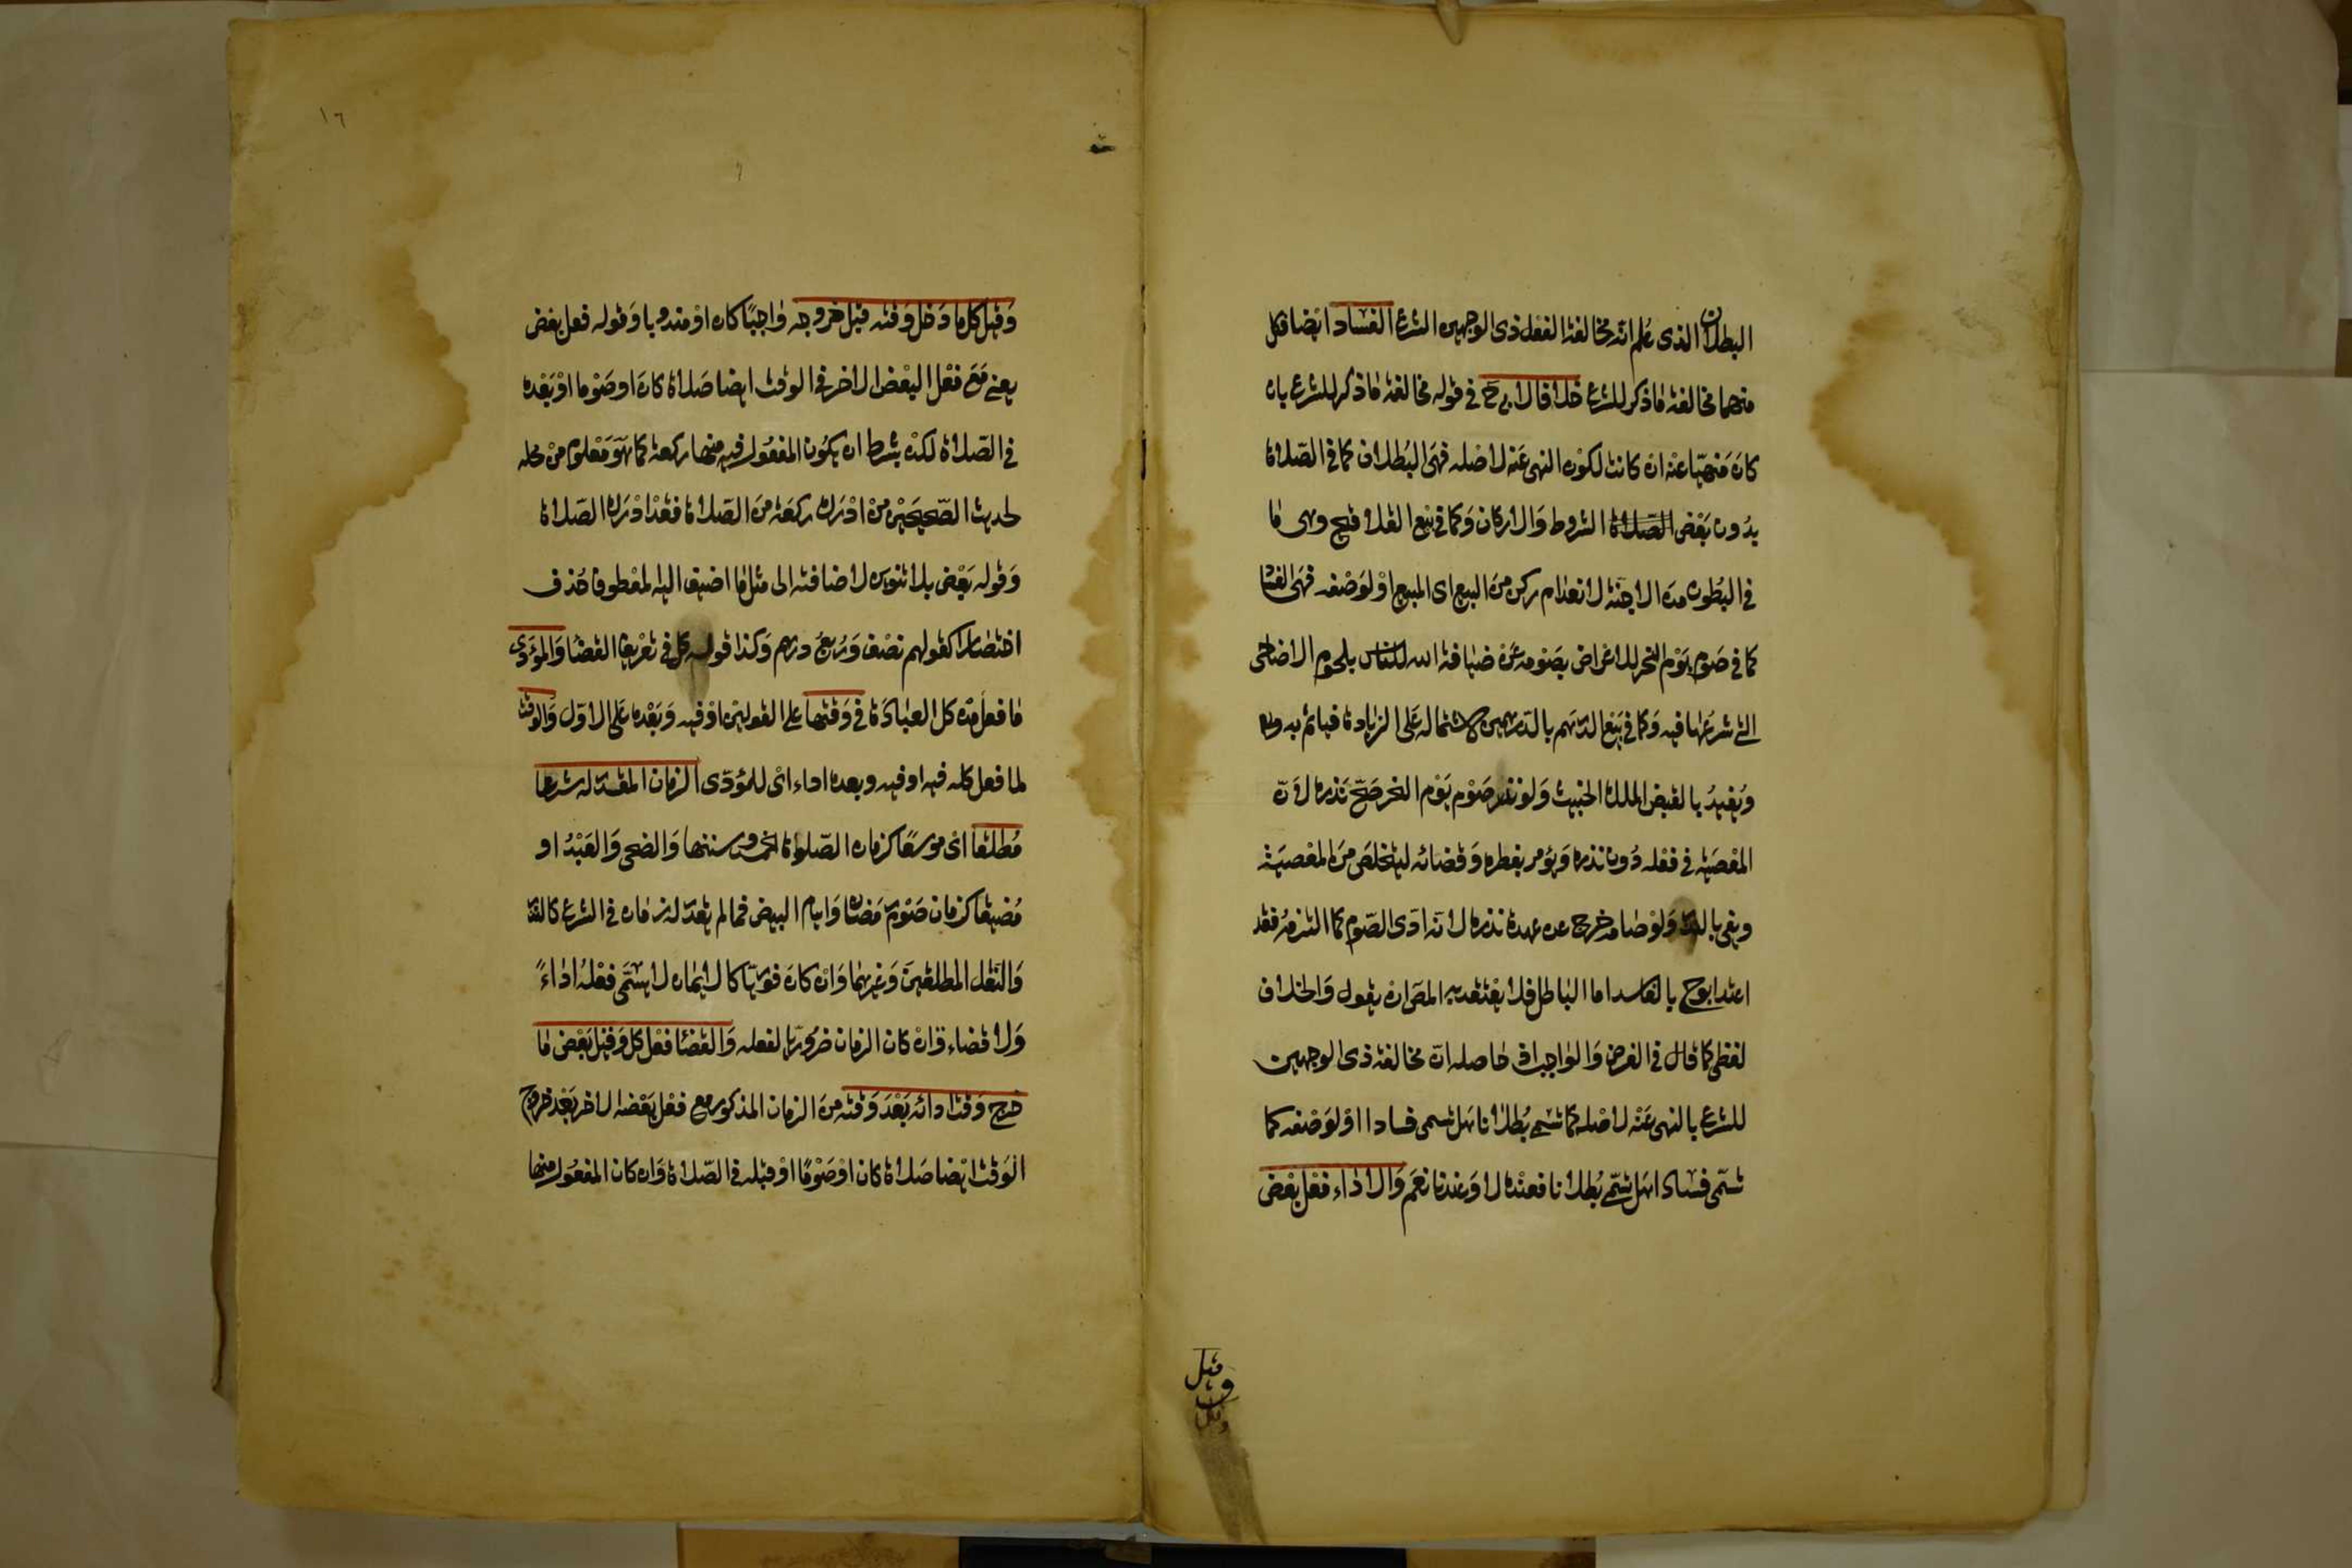 البطلان الذى عُلم انه مخالفة الفعل ذى الوجهين الشرع الفساد ايضا فكل
منهما مخالفة ماذكر للشرع خلافا لابى ح فى قوله مخالفة ماذكر للشرع بان
كان منهيّا عنه ان كانت لكون النهى عنه لاصله فهى البُطلان كما فى الصّلاة
بدُون بَعْض الصّلاة الشروط وَالاركان وَكما فى بيع الملاقيح وهى ما
فى البُطون من الاجنّة لانعدام ركن من البيع اى المبيع اوْ لوَصْفه فهى الفسا
كما فى صَوم يَوْم النحر للاعراض بصَومه عَن ضيافة الله للناس بلحوم الاضاحى
التى شرعَها فيه وَكما فى بَيْع الدرهم بالدرهمين لاشتماله عَلى الزيادة فياثم به
وَيُفيدُ بالقبض الملك الخبيث وَلو نذر صَوْم يَوْم النحر صَحّ نَذره لانّ
المعْصيَة فى فعْله دُون نذره وَيؤمر بفطره وَقضائه ليتخلصَ منَ المعْصيَة
ويفى بالنذر وَلوْ صَامه خرج عن عهدة نذره لانه ادّى الصّوم كما التزمه فقد
اعتد ابو ح بالفاسد اما البَاطل فلا يعْتد به المصَ ان يقول وَالخلاف
لفظى كما قال فى الفرض وَالوَاجب اذ حَاصله انّ مخالفة ذى الوجهين
للشرع بالنهى عَنْه لاصْله كما تسمى بُطلانا هَل تسمى فسادا اوْ لوَصْفه كما
تسَمّى فسَادا هَل تسَمّى بُطلانا فعنْده لا وَعندنا نعَم وَالادَاء فعْل بعْض
قيل
وقيل
وَقيل كل مَا دَخل وَقته قبْل خروجه وَاجبًا كان اوْ مندوبا وَقوله فعل بعْض
يعنى مَعَ فعْل البعْض الاخر فى الوقت ايضا صَلاة كانَ اوصَوْما اوْ بَعْده
فى الصّلاة لكنْ بشرط ان يكون المفعُول فيه منها ركعة كما هوَ مَعْلوم منْ محله
لحديث الصّحيحَيْن منْ ادْرَك ركعَة منَ الصّلاة فقدْ ادْرَك الصّلاة
وَقوله بَعْض بلا تنوين لاضافته الى مثل مَا اضيف اليه المعْطوف حُذف
اختصَارا كقولهم نصْف وَرُبعُ درهم وَكذا قوله كل فى تعْريف القضَا وَالمؤدّى
مَا فعل منْ كل العبَادَة فى وَقتها على القولين اوْ فيه وَبَعْده عَلى الاوّل وَالوقت
لما فعل كله فيه اوفيه وبعده اداء اىْ للمؤدّى الزمان المقدّر له شرعا
مُطلقا اىْ موسعًا كزمان الصّلوَات الخمس وسننها وَالضحى وَالعَيْدُ او
مُضيقا كزمان صَوْم رَمَضَان وَايام البيض فما لم يقدّر له زمَان فى الشرع كالنذر
وَالنفل المطلقيْن وَغيْرهما وَانْ كانَ فوريّا كالايمَان لا يسَمّى فعْلهُ ادَاءً
وَلا قضاء وَانْ كان الزمان ضرُوريّا لفعله وَالقضَا فعْل كل وَقيل بَعْض مَا
خرج وَقت ادائه بَعْدَ وَقته منَ الزمان المذكور مع فعْل بَعْضه الاخر بَعْد خروج
الوَقت ايْضا صَلاة كان اوْ صَوْمًا اوْ قبْله فى الصّلاة وَان كان المفعُول منها
١٦